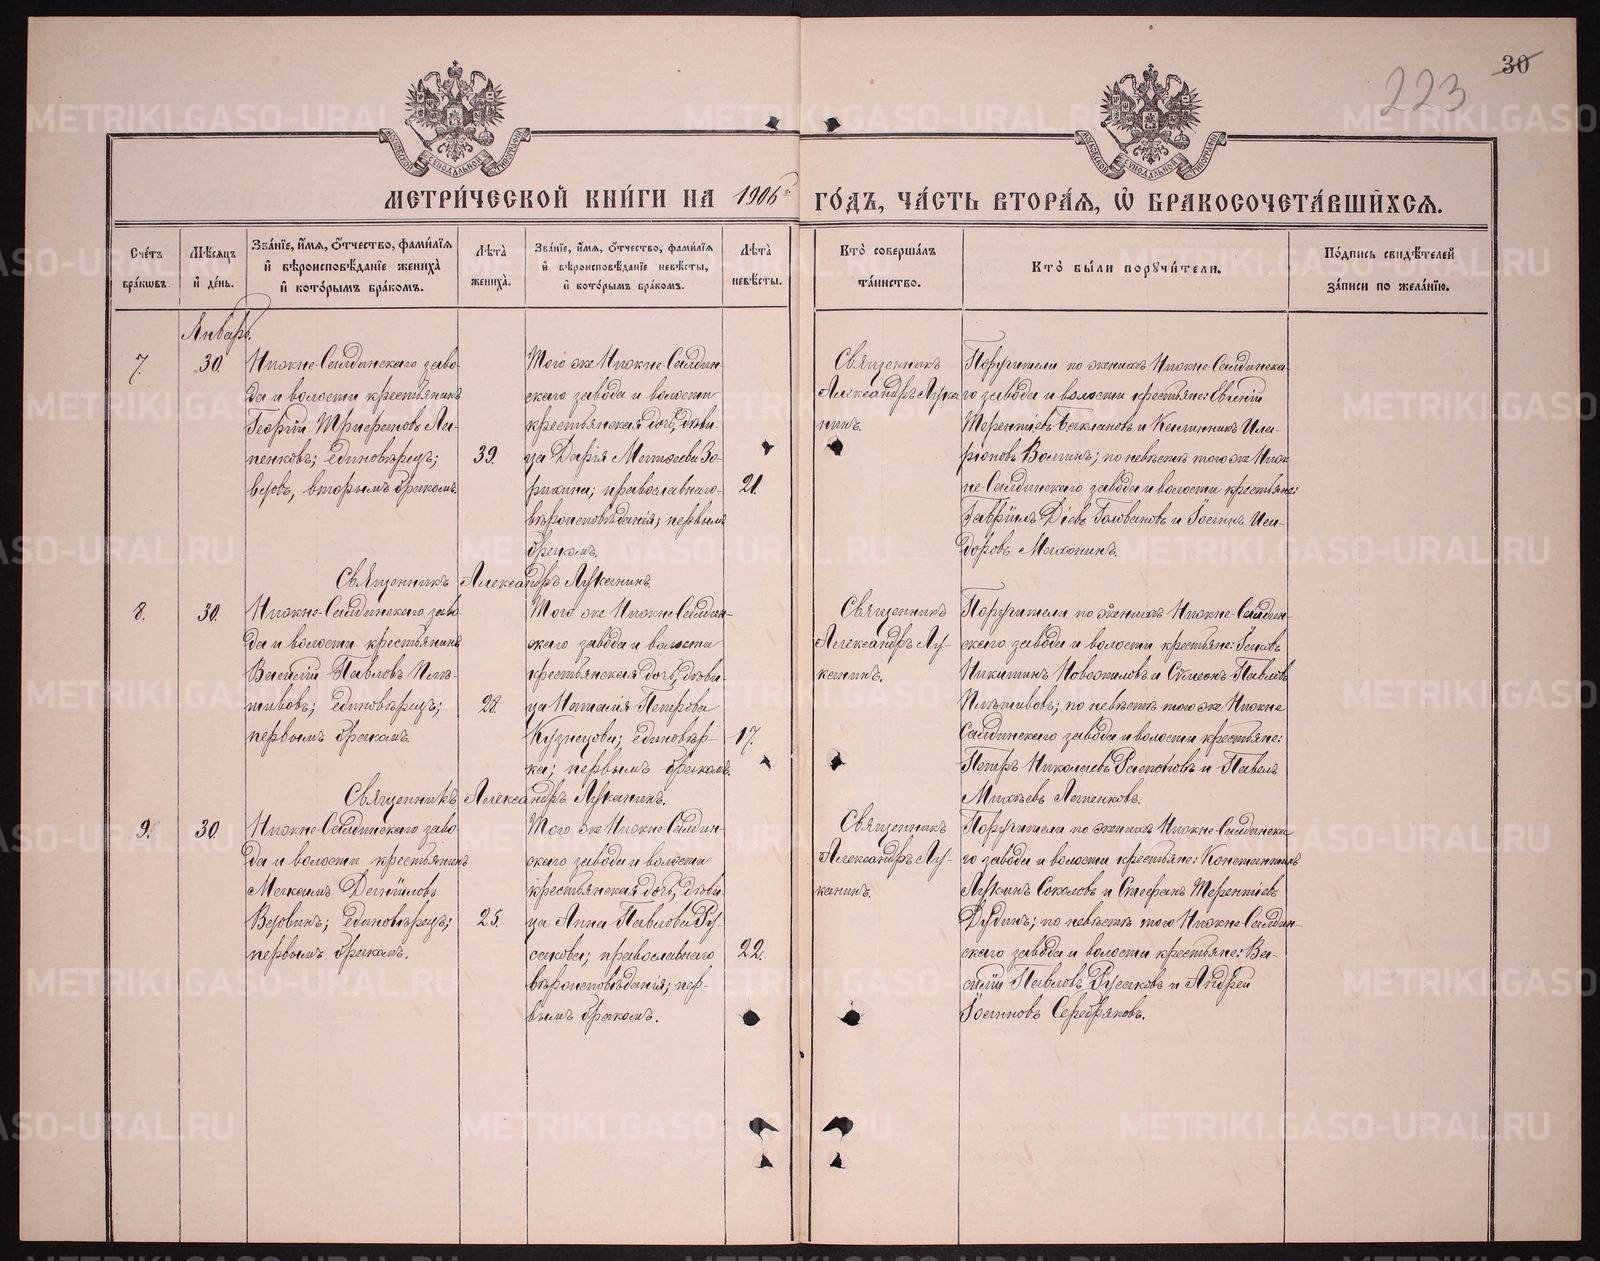 30
223
МЕТРИ́ЧЕСКОЙ КНИ́ГИ НА 1906 г. ГО́ДЪ, ЧА́СТЬ ВТОРА́Я, Ѡ БРАКОСОЧЕТА́ВШИХСЯ.
Сче́тъ бра́кѡвъ.
Мѣ́сяцъ и́ де́нь.
Зва́нїе, и́мя, о́тчество, фами́лїя и́ вѣроисповѣ́данїе жениха̀ и́ кото́рымъ бра́комъ.
Лѣта̀ жениха̀.
Зва́нїе, и́мя, о́тчество, фами́лїя и́ вѣроисповѣ́данїе невѣ́сты, и́ кото́рымъ бра́комъ.
Лѣта̀ невѣ́сты.
Кто̀ соверша́лъ та́инство.
Кто̀ бы́ли поручи́тели.
По́дпись свидѣ́телей за́писи по жела́нїю.
Январь.
7.
30.
Нижне-Салдинскаго заво-
да и волости крестьянинъ
Георгій Трифоновъ Ла-
пенковъ; единовѣрецъ;
вдовъ, вторымъ бракомъ.
39.
Того же Нижне-Салдин-
скаго завода и волости
крестьянская дочь, дѣви-
ца Дарія Матѳеева Зо-
рихина; православнаго
вѣроисповѣданія; первымъ
бракомъ.
21.
Священникъ
Александръ Лука-
нинъ.
Поручители по женихѣ Нижне-Салдинска-
го завода и волости крестьяне: Евгеній
Терентіевъ Баклановъ и Калинникъ Ила-
ріоновъ Волгинъ; по невѣстѣ того же Ниж-
не-Салдинскаго завода и волости крестьяне:
Гавріилъ Діевъ Головановъ и Іоаннъ Иси-
доровъ Махонинъ.
Священникъ Александръ Луканинъ.
8.
30.
Нижне-Салдинскаго заво-
да и волости крестьянинъ
Василій Павловъ Плѣ-
шивовъ; единовѣрецъ;
первымъ бракомъ.
28.
Того же Нижне-Салдин-
скаго завода и волости
крестьянская дочь, дѣви-
ца Наталія Петрова
Кузнецова; единовѣр-
ка; первымъ бракомъ.
17.
Священникъ
Александръ Лу-
канинъ.
Поручители по женихѣ Нижне-Салдин-
скаго завода и волости крестьяне: Іаковъ
Никитинъ Новожиловъ и Сѵмеонъ Павловъ
Плѣшивовъ; по невѣстѣ того же Нижне
Салдинскаго завода и волости крестьяне:
Петръ Николаевъ Распоповъ и Павелъ
Михѣевъ Лапенковъ.
Священникъ Александръ Луканинъ.
9.
30.
Нижне-Салдинскаго заво-
да и волости крестьянинъ
Максимъ Даніиловъ
Вдовинъ; единовѣрецъ;
первымъ бракомъ.
25.
Того же Нижне-Салдин-
скаго завода и волости
крестьянская дочь, дѣви-
ца Анна Павлова Ру-
сакова; православнаго
вѣроисповѣданія; пер-
вымъ бракомъ.
22.
Священникъ
Александръ Лу-
канинъ.
Поручители по женихѣ Нижне-Салдинска-
го завода и волости крестьяне: Константинъ
Лукинъ Соколовъ и Стефанъ Терентіевъ
Дудинъ; по невѣстѣ того Нижне-Салдин-
скаго завода и волости крестьяне: Ва-
силій Павловъ Русаковъ и Андрей
Іоанновъ Серебряковъ.
METRIKI.GASO-URAL.RU